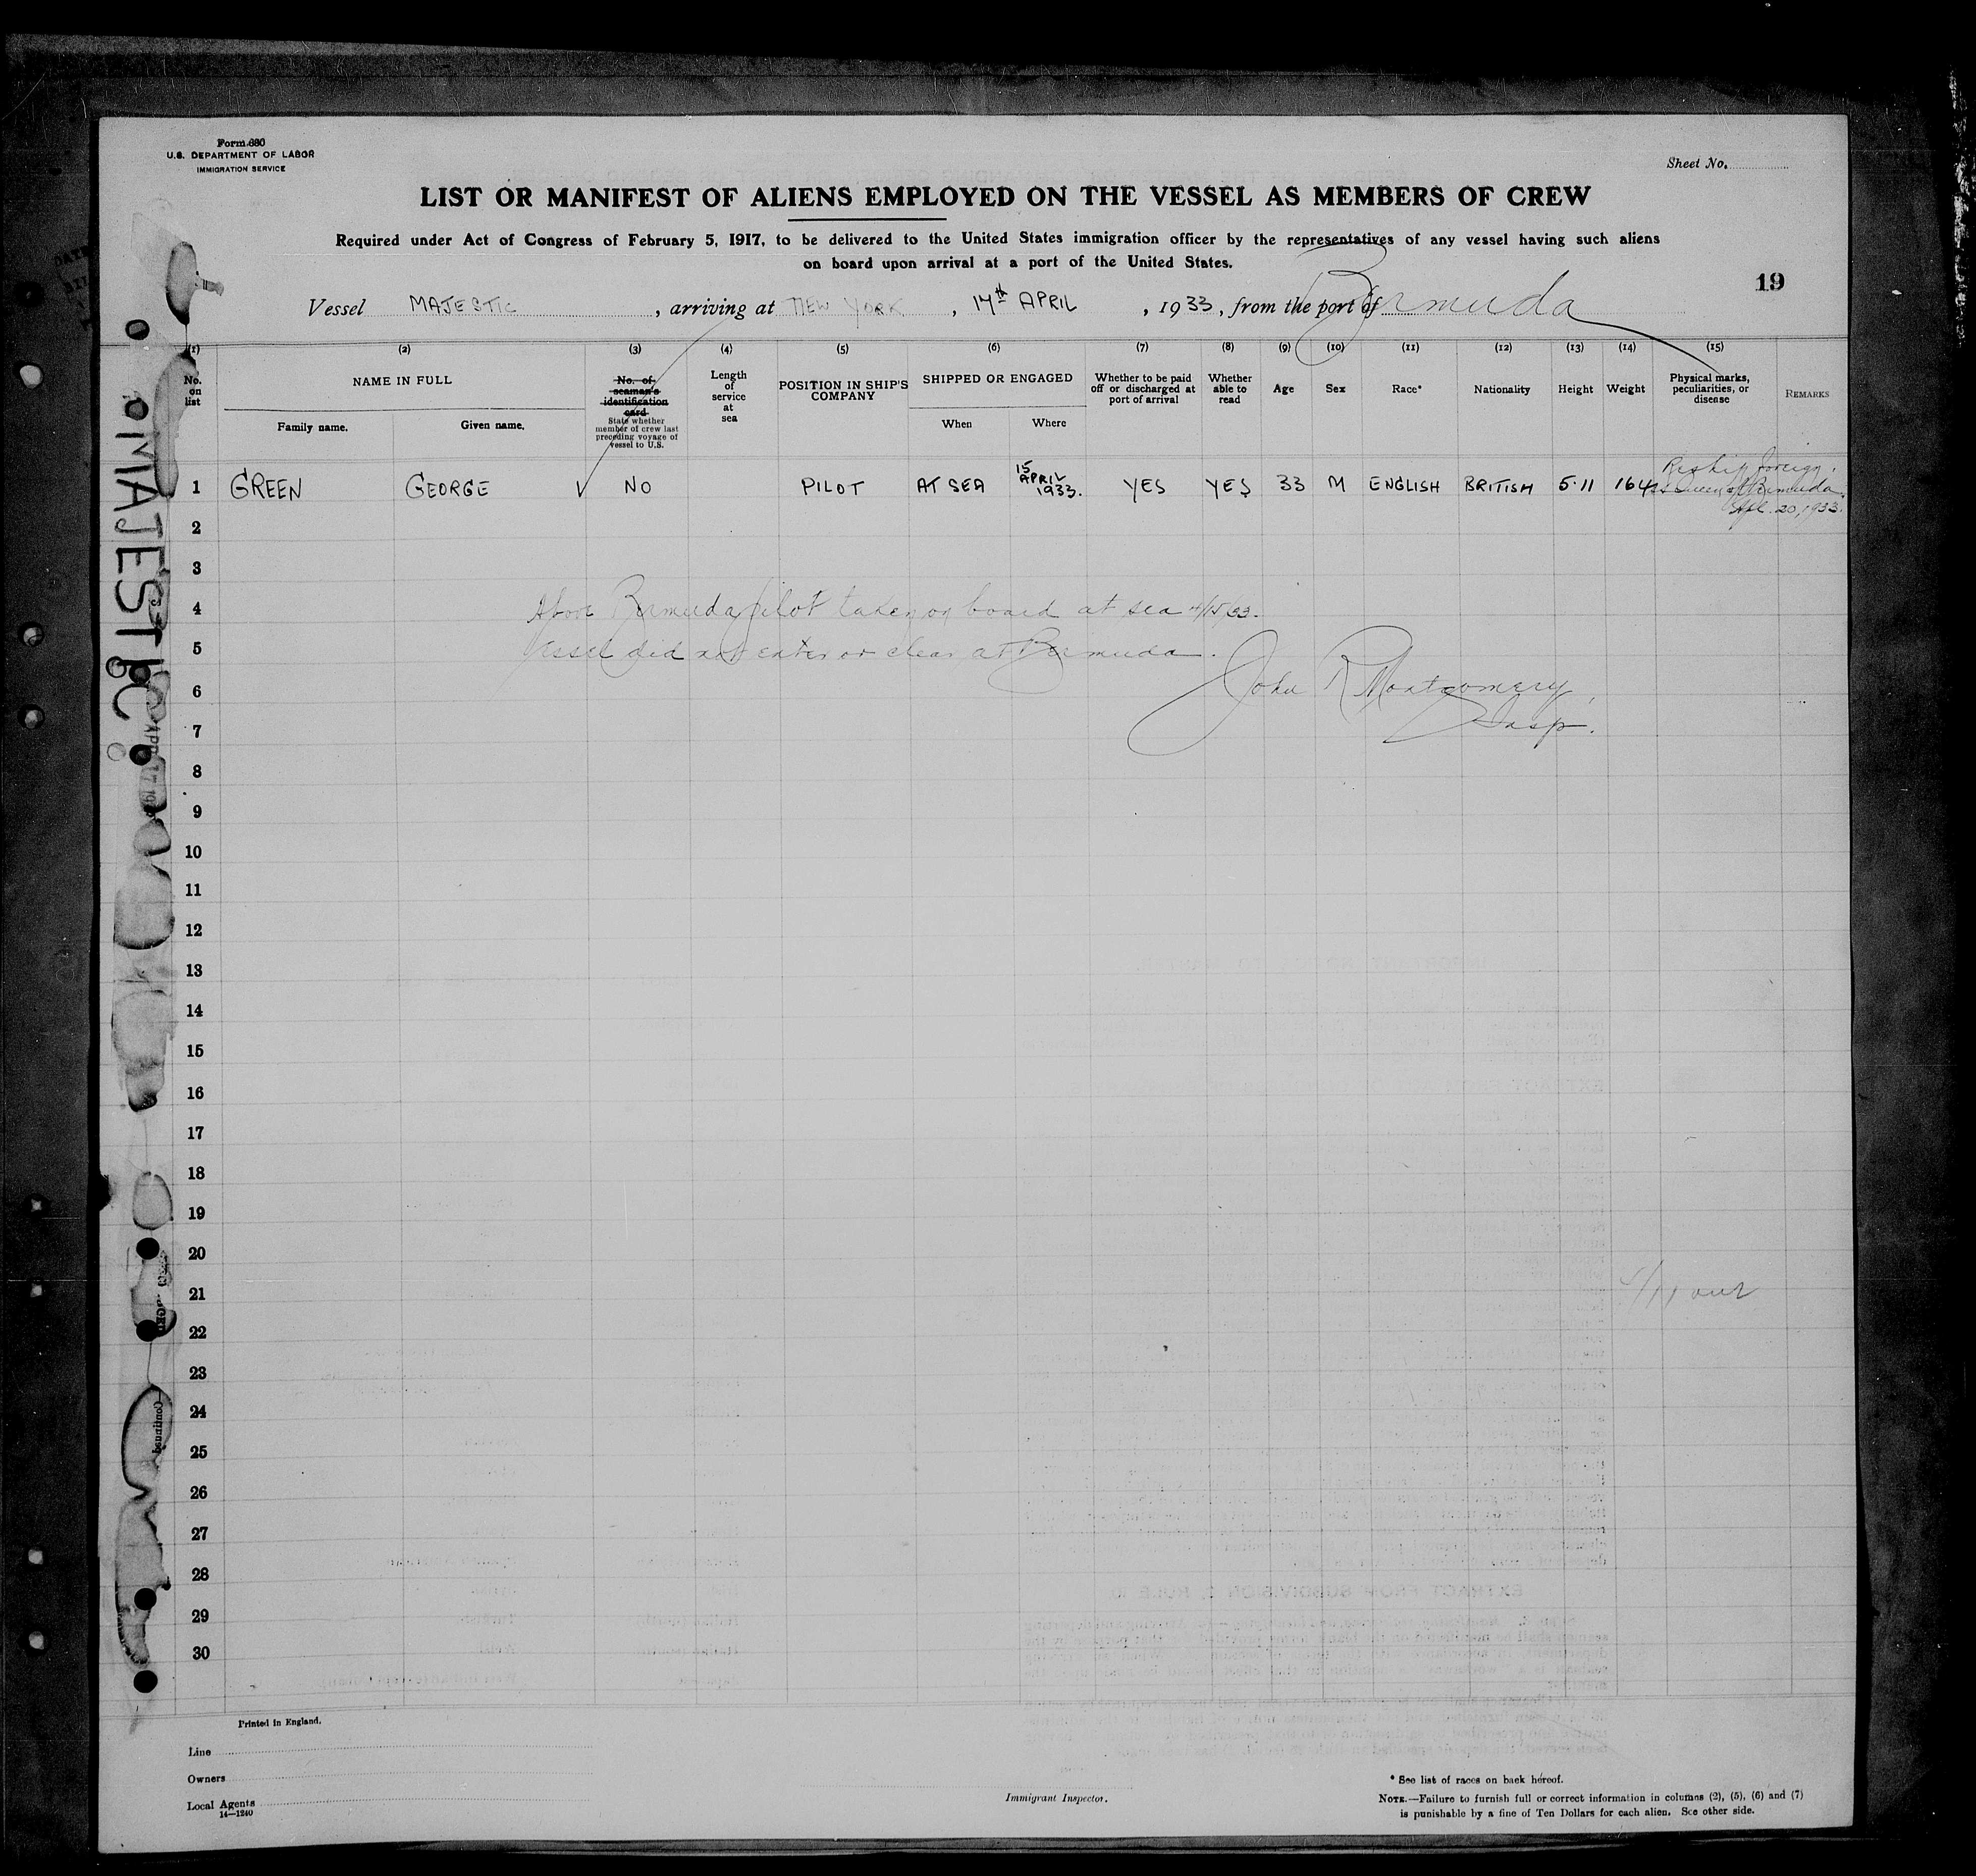 Form 680
U.S. DEPARTMENT OF LABOR
IMMIGRATION SERVICE
Sheet No.
LIST OR MANIFEST OF ALIENS EMPLOYED ON THE VESSEL AS MEMBERS OF CREW
Required under Act of Congress of February 5, 1917, to be delivered to the United States immigration officer by the representatives of any vessel having such aliens
on board upon arrival at a port of the United States.
19
Vessel MAJESTIC, arriving at NEW YORK, 17th APRIL, 1933, from the port of Bermuda
(1) (2) (3) (4) (5) (6) (7) (8) (9) (10) (11) (12) (13) (14) (15)
No. on list
NAME IN FULL
Family name. Given name.
No. of seaman's identification card
State whether member of crew last preceding voyage of vessel to U.S.
Length of service at sea
POSITION IN SHIP'S COMPANY
SHIPPED OR ENGAGED
When Where
Whether to be paid off or discharged at port of arrival
Whether able to read
Age Sex Race* Nationality Height Weight
Physical marks, peculiarities, or disease
REMARKS
1 GREEN GEORGE √ NO PILOT AT SEA 15 APRIL 1933. YES YES 33 M ENGLISH BRITISH 5·11 164
Reship foreign.
SS Queen of Bermuda.
Apl. 20, 1933.
2
3
4 Above Bermuda pilot taken on board at sea 4/15/33.
5 Vessel did not enter or clear at Bermuda.
6 John R Montgomery,
7 Insp.
8
9
10
11
12
13
14
15
16
17
18
19
20
21
22
23
24
25
26
27
28
29
30
MAJESTIC
Continued
Printed in England.
Line
Owners
Local Agents
14—1240
Immigrant Inspector.
* See list of races on back hereof.
NOTE.—Failure to furnish full or correct information in columns (2), (5), (6) and (7)
is punishable by a fine of Ten Dollars for each alien. See other side.